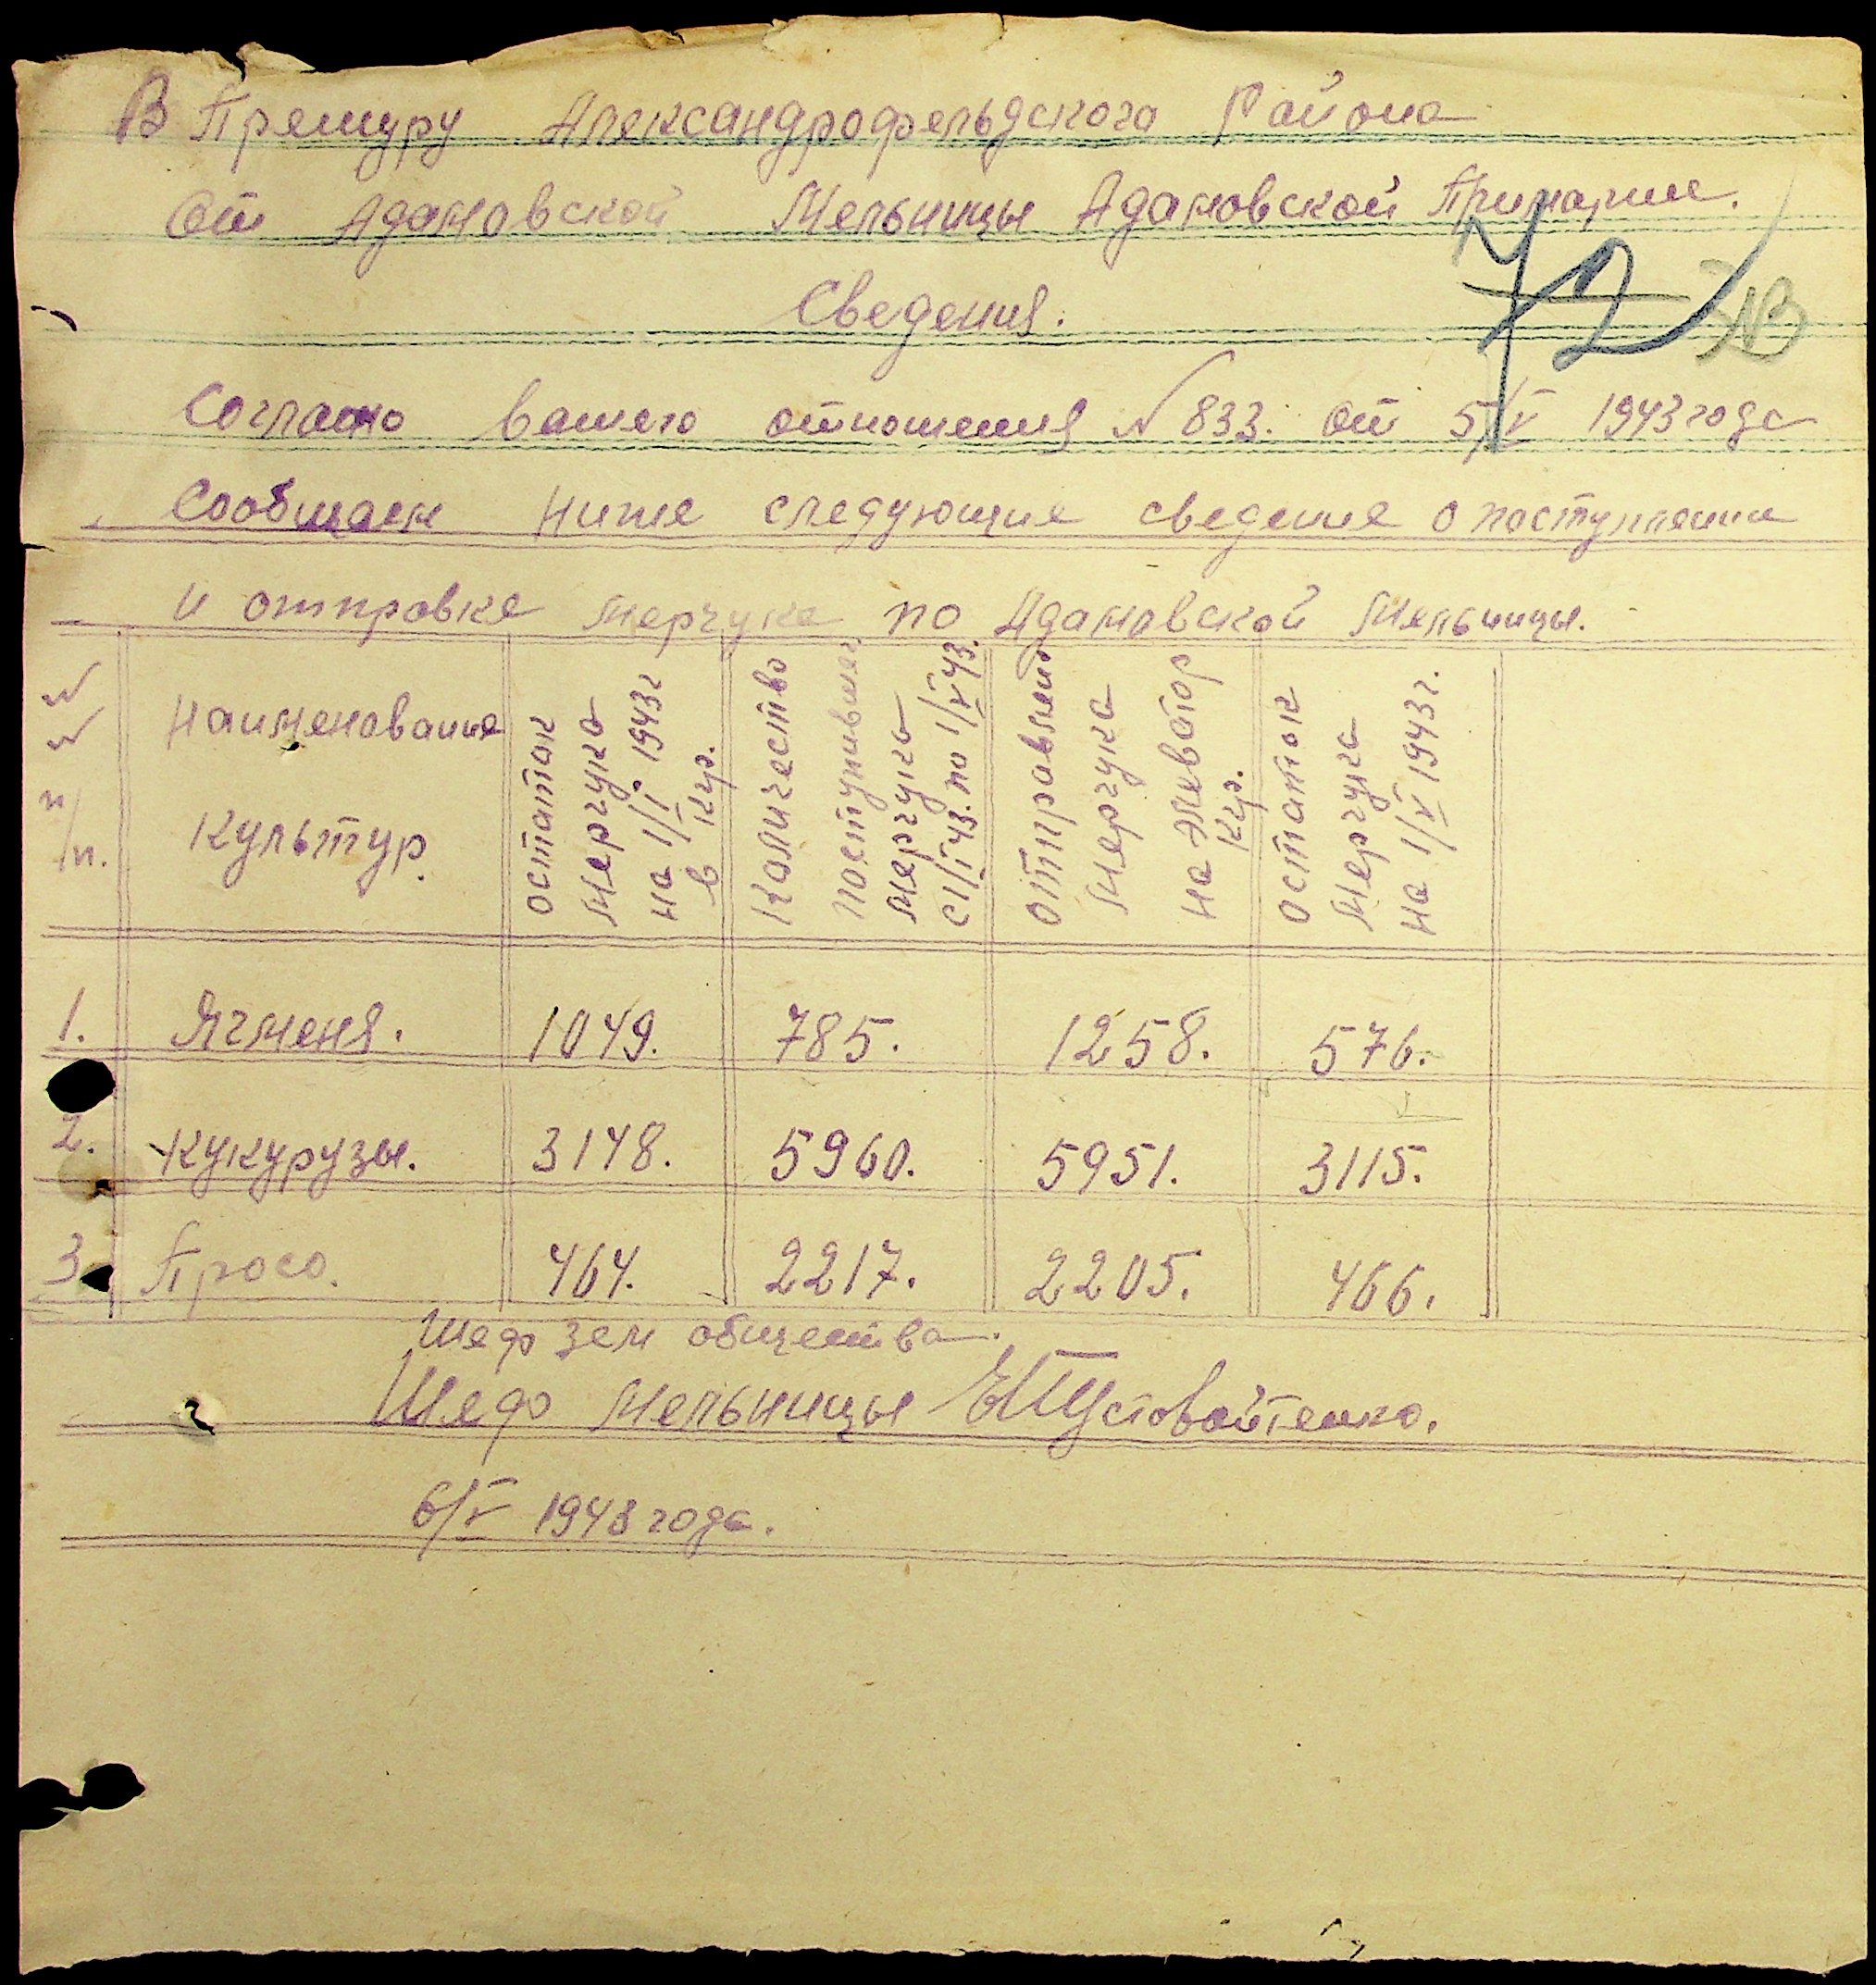 В Премуру Александрофельдского Района
От Адамовской Мельницы Адамовской Примарие.
Сведения.
72
Согласно вашего отношения N 833. от 5/V 1943 года
Сообщаем ниже следующие сведение о поступлении
и отправке мерчука по Адамовской Мельницы.
N N п/п.
Наименование культур.
остаток мерчука на 1/I 1943 г в кгр.
Количество поступившег мерчука с 1/I 43. по 1/V 43.
отправлено мерчука на элеватор кгр.
остаток мерчука на 1/V 1943 г.
1. Ячменя. 1049. 785. 1258. 576.
2. Кукурузы. 3148. 5960. 5951. 3115.
3. Просо. 464. 2217. 2205. 466.
Шеф зем общества.
Шеф мельницы ЕПустовойтенко.
6/V 1943 года.